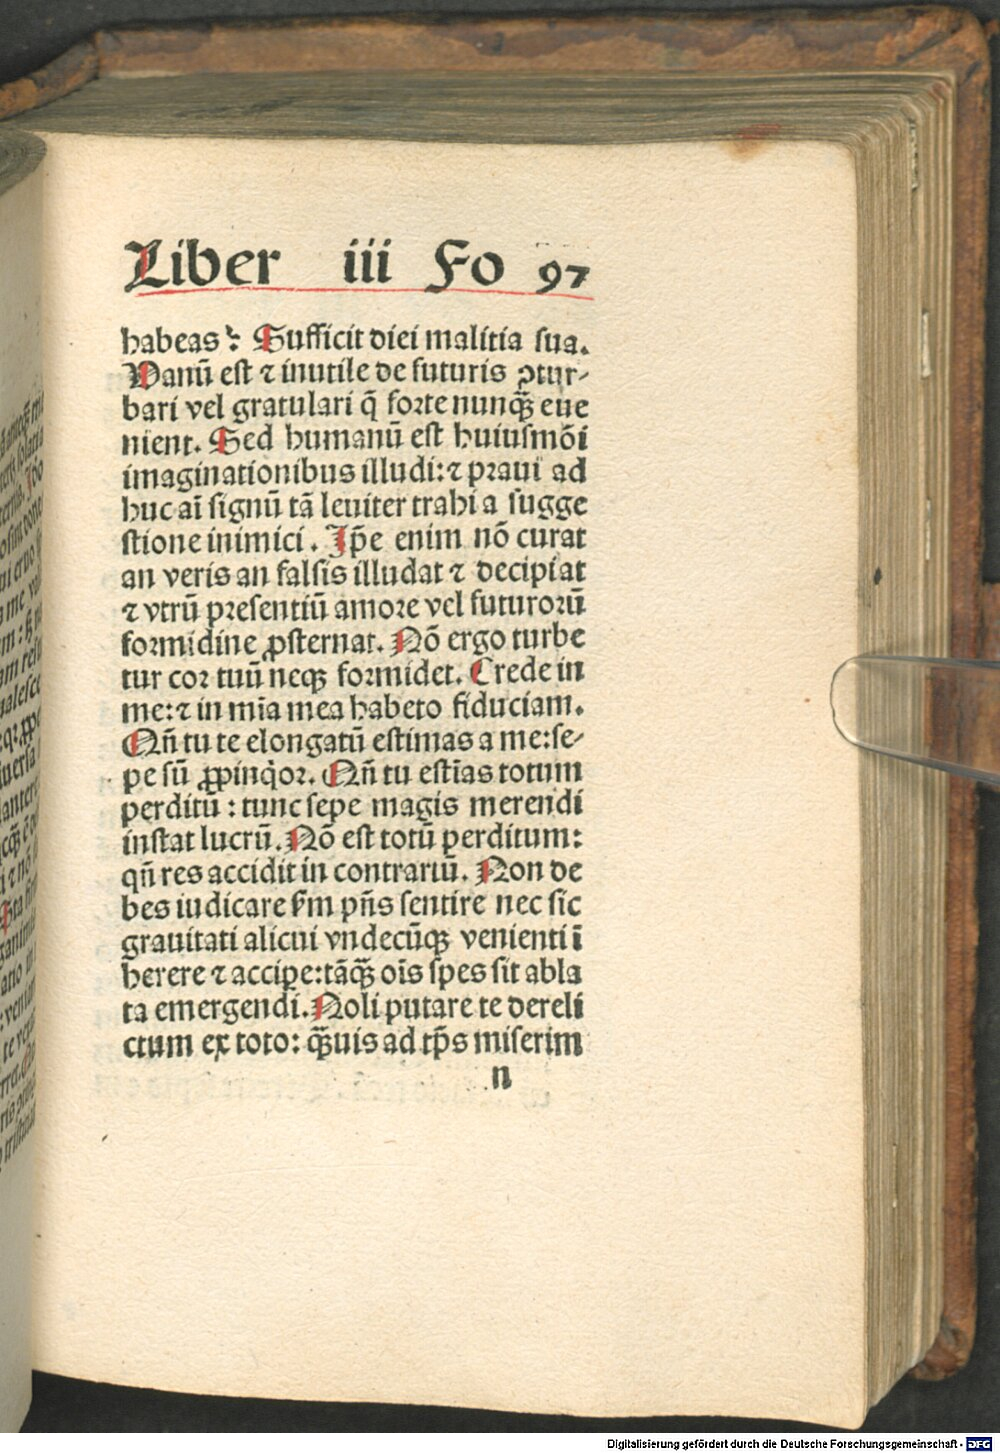 Liber iii Fo 97
habeas? Sufficit diei malitia sua.
Vanū est ⁊ inutile de futuris ꝯtur-
bari vel gratulari q̄ forte nunq̄ꝫ eue
nient. Sed humanū est huiusmōi
imaginationibus illudi:⁊ praui ad
huc ai signū tā leuiter trahi a sugge
stione inimici. Ip̄e enim nō curat
an veris an falsis illudat ⁊ decipiat
⁊ vtrū presentiū amore vel futurorū
formidine ꝓsternat. Nō ergo turbe
tur cor tuū neqꝫ formidet. Crede in
me:⁊ in mīa mea habeto fiduciam.
Qn̄ tu te elongatū estimas a me:se-
pe sū ꝓpinq̇or. Qn̄ tu estīas totum
perditū: tunc sepe magis merendi
instat lucrū. Nō est totū perditum:
qn̄ res accidit in contrariū. Non de
bes iudicare ẜm pn̄s sentire nec sic
grauitati alicui vndecūqꝫ venienti ī
herere ⁊ accipe:tāq̄ꝫ oīs spes sit abla
ta emergendi. Noli putare te dereli
ctum ex toto: q̄ꝫuis ad tp̄s miserim
n
Digitalisierung gefördert durch die Deutsche Forschungsgemeinschaft - DFG